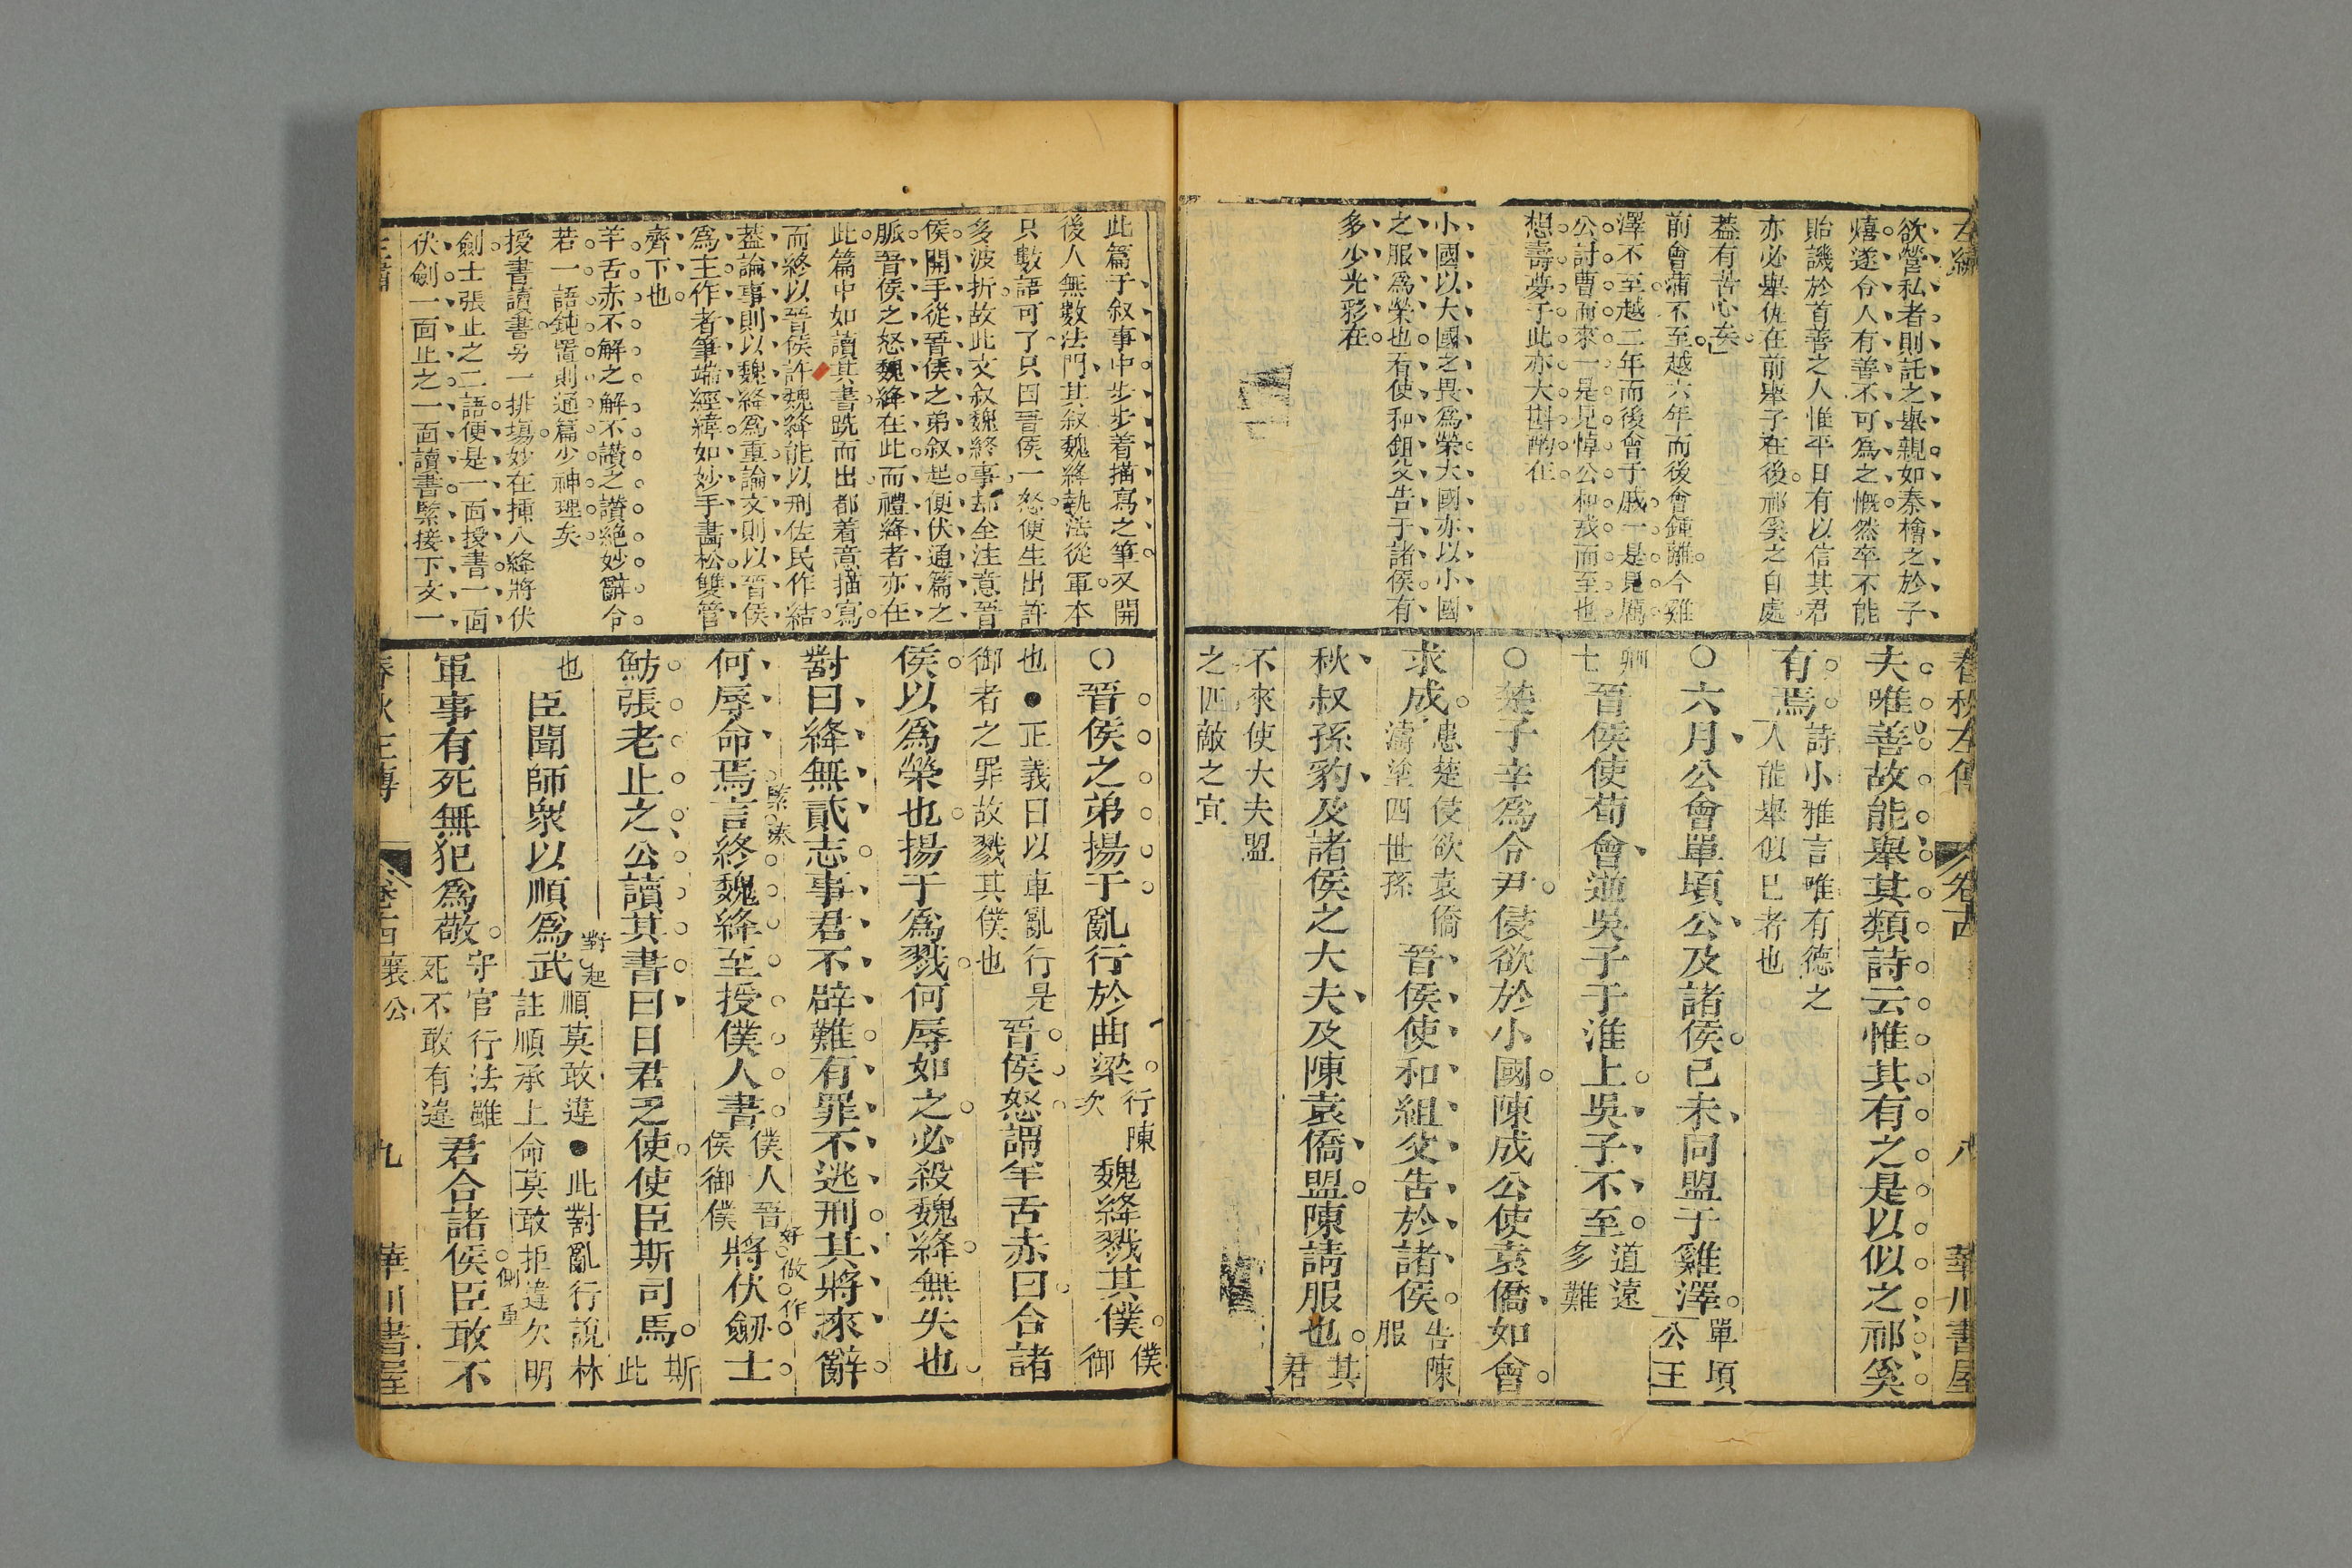 欲營私者則託之舉親如秦檜之於子
熺遂令人有善不可爲之慨然卒不能
貽譏於首善之人惟平日有以信其君
亦必舉仇在前舉子在後祁奚之自處
蓋有苦心矣
前會蒲不至越六年而後會鍾離今雞
澤不至越二年而後會于戚一是見厲
公討曹而來一是見悼公和戎而至也
想壽夢于此亦大斟酌在
小國以大國之畏爲榮大國亦以小國
之服爲榮也看使和組父告于諸侯有
多少光彩在
春秋左傳 卷十四 八 華川書屋
夫唯善故能舉其類詩云惟其有之是以似之祁奚
有焉詩小雅言唯有德之
人能舉似已者也
○六月公會單頃公及諸侯己未同盟于雞澤單頃
公王
卿
士晉侯使荀會逆吳子于淮上吳子不至道遠
多難
○楚子辛爲令尹侵欲於小國陳成公使袁僑如會
求成患楚侵欲袁僑
濤塗四世孫晉侯使和組父告於諸侯告陳
服
秋叔孫豹及諸侯之大夫及陳袁僑盟陳請服也其
君
不來使大夫盟
之匹敵之宜
此篇于叙事中步步着描寫之筆又開
後人無數法門其叙魏絳執法從軍本
只數語可了只因晉侯一怒便生出許
多波折故此文叙魏終事却全注意晉
侯開手從晉侯之弟叙起便伏通篇之
脈晉侯之怒魏絳在此而禮絳者亦在
此篇中如讀其書跣而出都着意描寫
而終以晉侯許魏絳能以刑佐民作結
蓋論事則以魏絳爲重論文則以晉侯
爲主作者筆端經緯如妙手畵松雙管
齊下也
羊舌赤不解之解不讚之讚絕妙辭令
若一語鈍置則通篇少神理矣
授書讀書另一排塲妙在揷入絳將伏
劍士張止之二語便是一面授書一面
伏劍一面止之一面讀書緊接下文一
○晉侯之弟揚干亂行於曲梁行陳
次魏絳戮其僕僕
御
也●正義曰以車亂行是
御者之罪故戮其僕也晉侯怒謂羊舌赤曰合諸
侯以爲榮也揚干爲戮何辱如之必殺魏絳無失也
對曰絳無貳志事君不辟難有罪不逃刑其將來辭
何辱命焉言終魏絳至授僕人書僕人晉
侯御僕將伏劒士
好做作
魴張老止之公讀其書曰日君乏使使臣斯司馬斯
此
也臣聞師衆以順爲武順莫敢違●此對亂行說林
註順承上命莫敢拒違欠明
對起
軍事有死無犯爲敬守官行法雖
死不敢有違君合諸侯臣敢不
側重
春秋左傳 卷十四 襄公 九 華川書屋